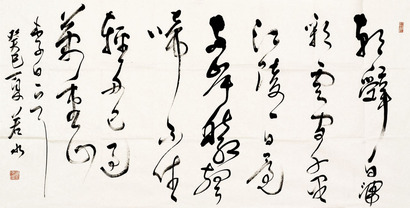 朝辭白帝
彩雲間千里
江陵一日還
兩岸猿聲
啼不住
輕舟已過
萬重山
李白
癸巳夏若水